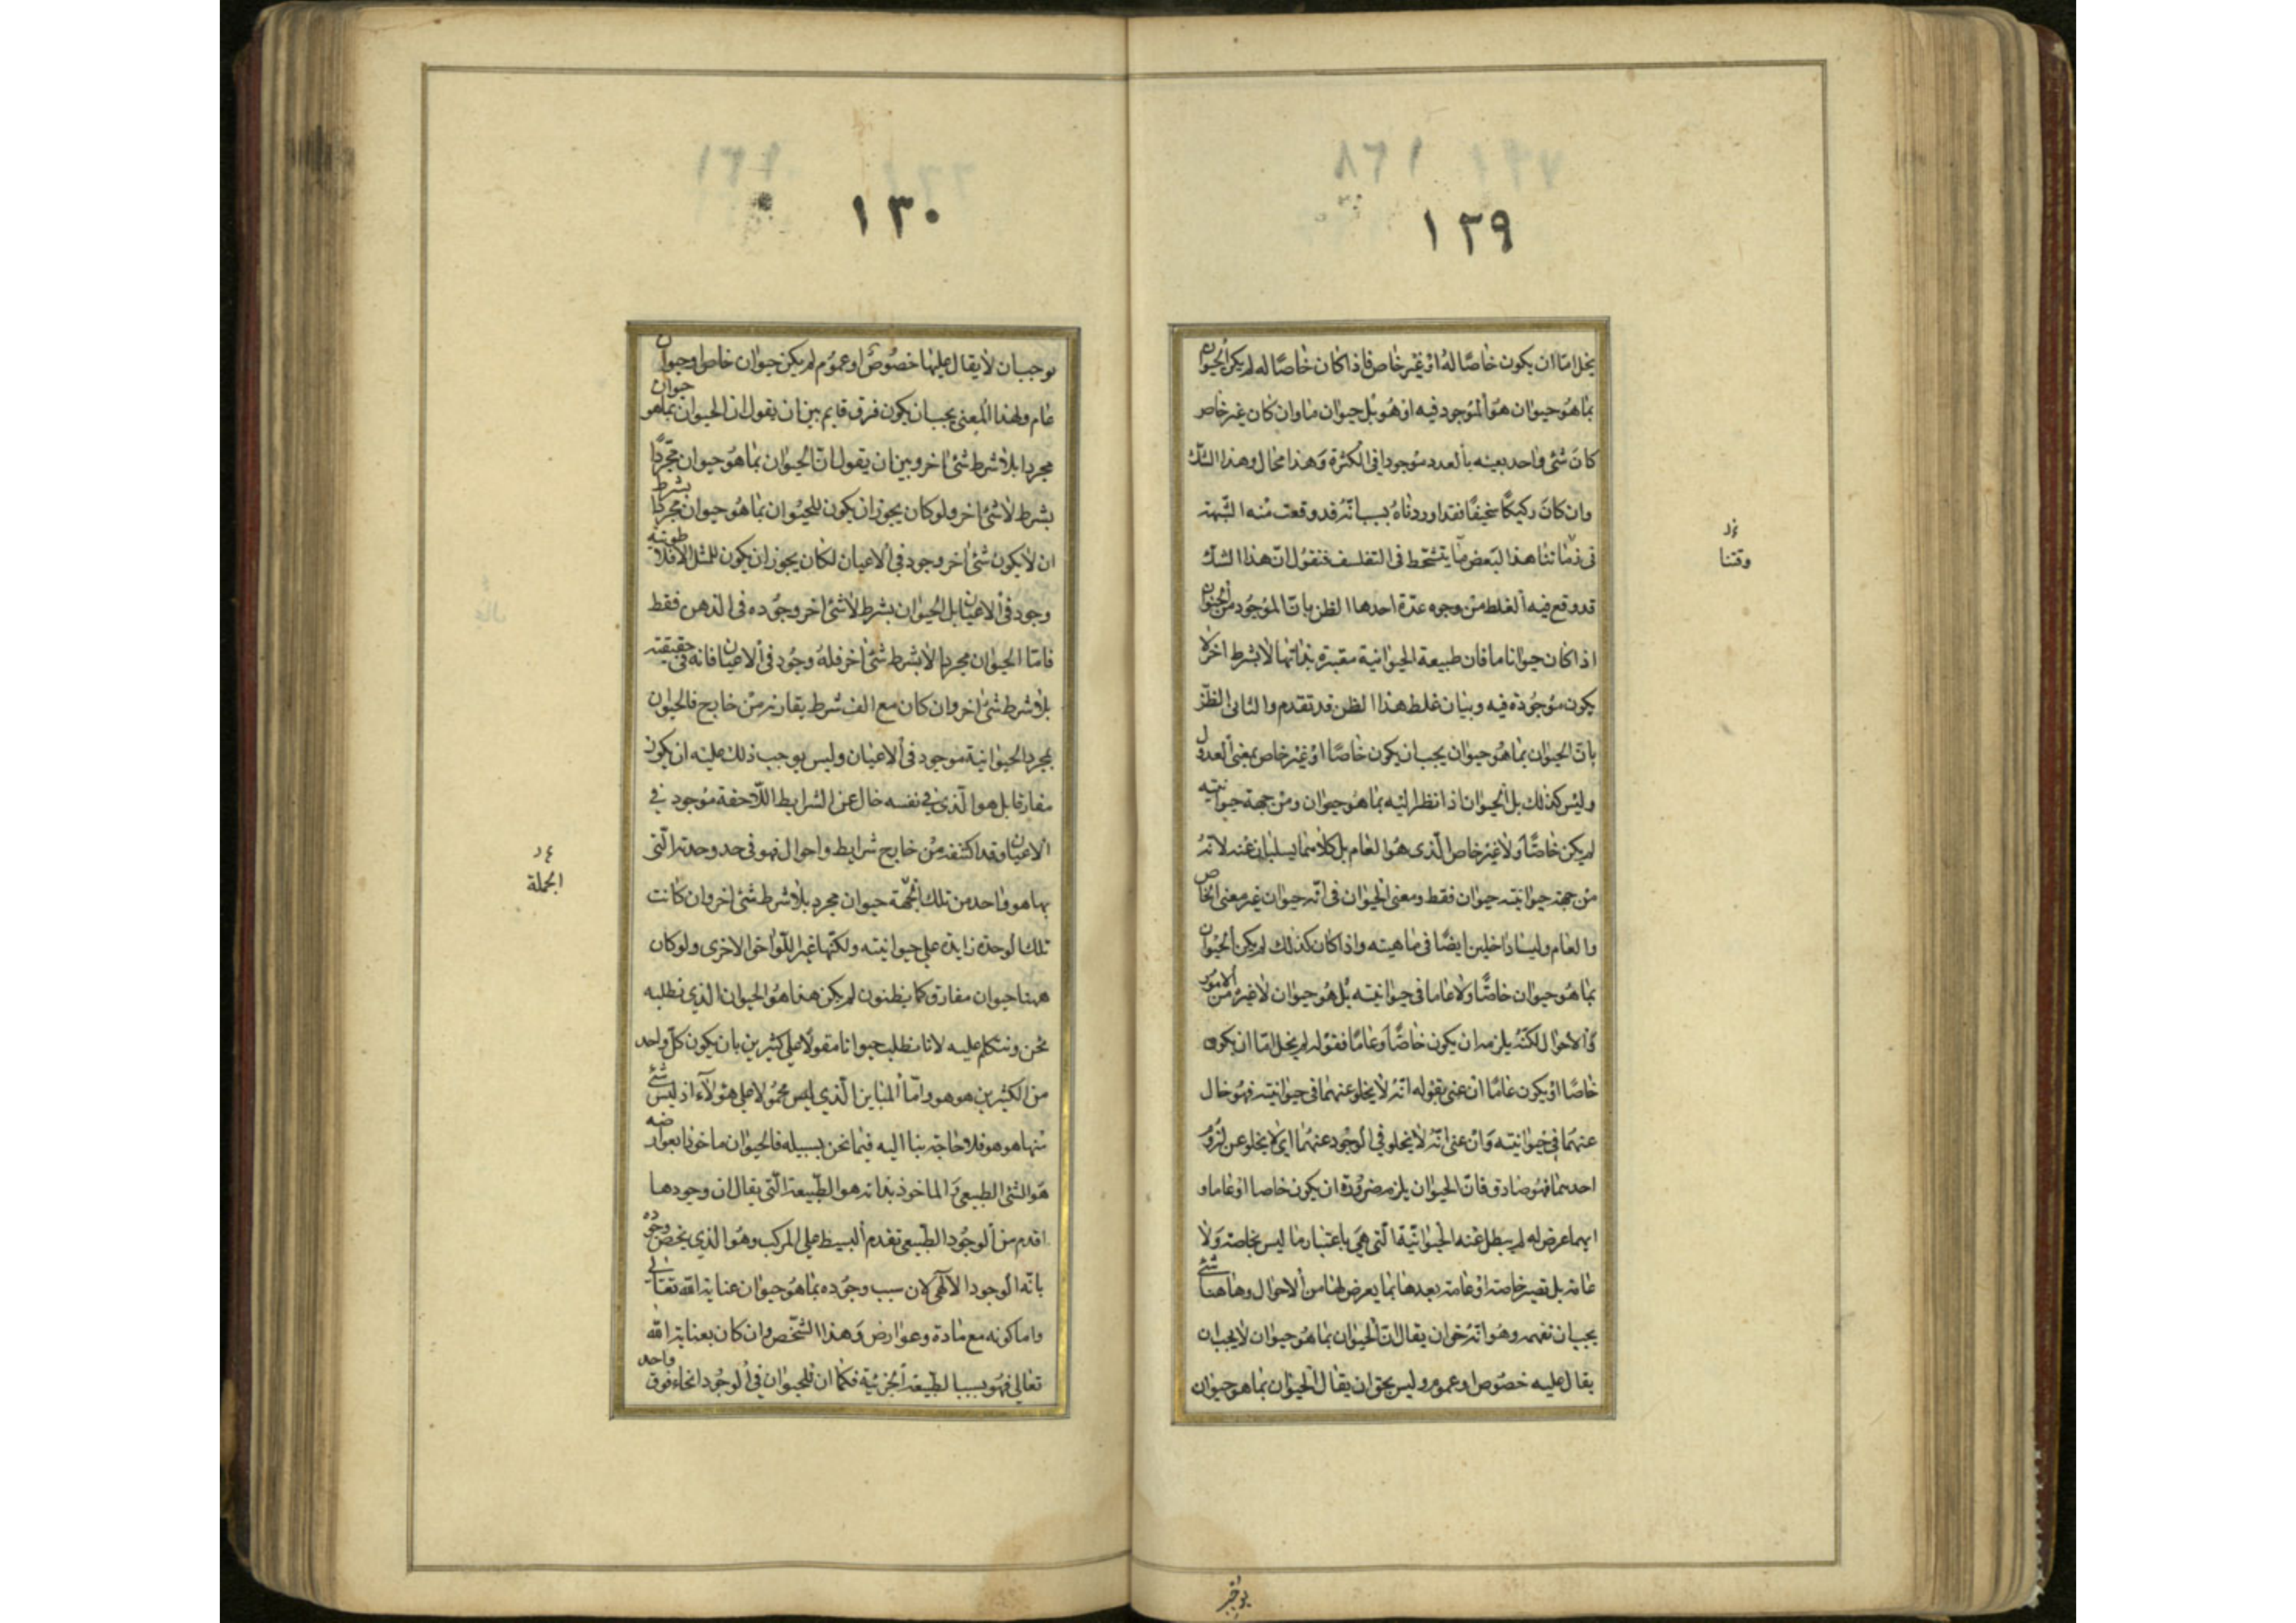 ١٢٩
يخل اما ان يكون خاصا له او غير خاص فاذا كان خاصا له لم يكن الحيوان
بما هو حيوان هو الموجود فيه او هو بل حيوان ما وان كان غير خاص
كان شئ واحد بعينه بالعدد موجودا فى الكثرة وهذا محال وهذا الشك
وان كان ركيكا سخيفا فقد اوردناه بسبب انه قد وقعت منه الشبهة
فى زماننا هذا لبعض من يتشحط فى التفلسف فنقول ان هذا الشك
قد وقع فيه الغلط من وجوه عدة احدها الظن بان الموجود من الحيوان
اذا كان حيوانا ما فان طبيعة الحيوانية معتبرة بذاتها لا بشرط اخر لا
يكون موجودة فيه وبيان غلط هذا الظن قد تقدم والثانى الظن
بان الحيوان بما هو حيوان يجب ان يكون خاصا او غير خاص بمعنى العدول
وليس كذلك بل الحيوان اذا نظر اليه بما هو حيوان ومن جهة حيوانيته
لم يكن خاصا ولا غير خاص الذى هو العام بل كلاهما يسلبان عنه لانه
من جهة حيوانيته حيوان فقط ومعنى الحيوان فى انه حيوان غير معنى الخاص
والعام وليسا داخلين ايضا فى ماهيته واذا كان كذلك لم يكن الحيوان
بما هو حيوان خاصا ولا عاما فى حيوانيته بل هو حيوان لا غير من الامور
والاحوال لكنه يلزمه ان يكون خاصا او عاما فقوله لم يخل اما ان يكون
خاصا او يكون عاما ان عنى بقوله انه لا يخلو عنهما فى حيوانيته فهو خال
عنهما فى حيوانيته وان عنى انه لا يخلو فى الوجود عنهما اى لا يخلو عن لزوم
احدهما فهو صادق فان الحيوان يلزمه ضرورة ان يكون خاصا او عاما و
ايهما عرض له لم يبطل عنه الحيوانية التى هى باعتبار ما ليس بخاصة ولا
عامة بل تصير خاصة او عامة بعدها بما يعرض لها من الاحوال وهاهنا شئ
يجب ان تفهمه وهو انه حق ان يقال ان الحيوان بما هو حيوان لا يجب ان
يقال عليه خصوص او عموم وليس بحق ان يقال الحيوان بما هو حيوان
وقتنا
١٣٠
يوجب ان لا يقال عليها خصوص او عموم لم يكن حيوان خاص او حيوان
عام ولهذا المعنى يجب ان يكون فرق قايم بين ان يقول ان الحيوان بما هو حيوان
مجردا بلا شرط شئ اخر وبين ان يقول ان الحيوان بما هو حيوان مجردا
بشرط لا شئ اخر ولو كان يجوز ان يكون للحيوان بما هو حيوان مجردا بشرط
ان لا يكون شئ اخر وجود فى الاعيان لكان يجوز ان يكون للمثل الافلاطونية
وجود فى الاعيان بل الحيوان بشرط لا شئ اخر وجوده فى الذهن فقط
فاما الحيوان مجردا لا بشرط شئ اخر فله وجود فى الاعيان فانه فى حقيقته
بلا شرط شئ اخر وان كان مع الف شرط يقارنه من خارج فالحيوان
بمجرد الحيوانية موجود فى الاعيان وليس يوجب ذلك عليه ان يكون
مفارقا بل هو الذى فى نفسه خال عن الشرايط اللاحقة موجود فى
الاعيان وقد اكتنفه من خارج شرايط واحوال فهو فى حد وحدته التى
بها هو واحد من تلك الجهة حيوان مجرد بلا شرط شئ اخر وان كانت
تلك الوحدة زايدة على حيوانيته ولكنها غير اللواحق الاخرى ولو كان
ههنا حيوان مفارق كما يظنون لم يكن هذا هو الحيوان الذى نطلبه
نحن ونتكلم عليه لانا نطلب حيوانا مقولا على كثيرين بان يكون كل واحد
من الكثيرين هو هو واما المباين الذى ليس محمولا على هؤلاء اذ ليس شئ
منها هو هو فلا حاجة بنا اليه فيما نحن بسبيله فالحيوان ماخوذا بعوارضه
هو الشئ الطبيعى والماخوذ بذاته هو الطبيعة التى يقال ان وجودها
اقدم من الوجود الطبيعى تقدم البسيط على المركب وهو الذى يخص وجوده
بانه الوجود الالهى لان سبب وجوده بما هو حيوان عناية الله تعالى
واما كونه مع مادة وعوارض وهذا الشخص وان كان بعناية الله
تعالى فهو بسبب الطبيعة الجزئية فكما ان للحيوان فى الوجود انحاء فوق واحد
الجملة